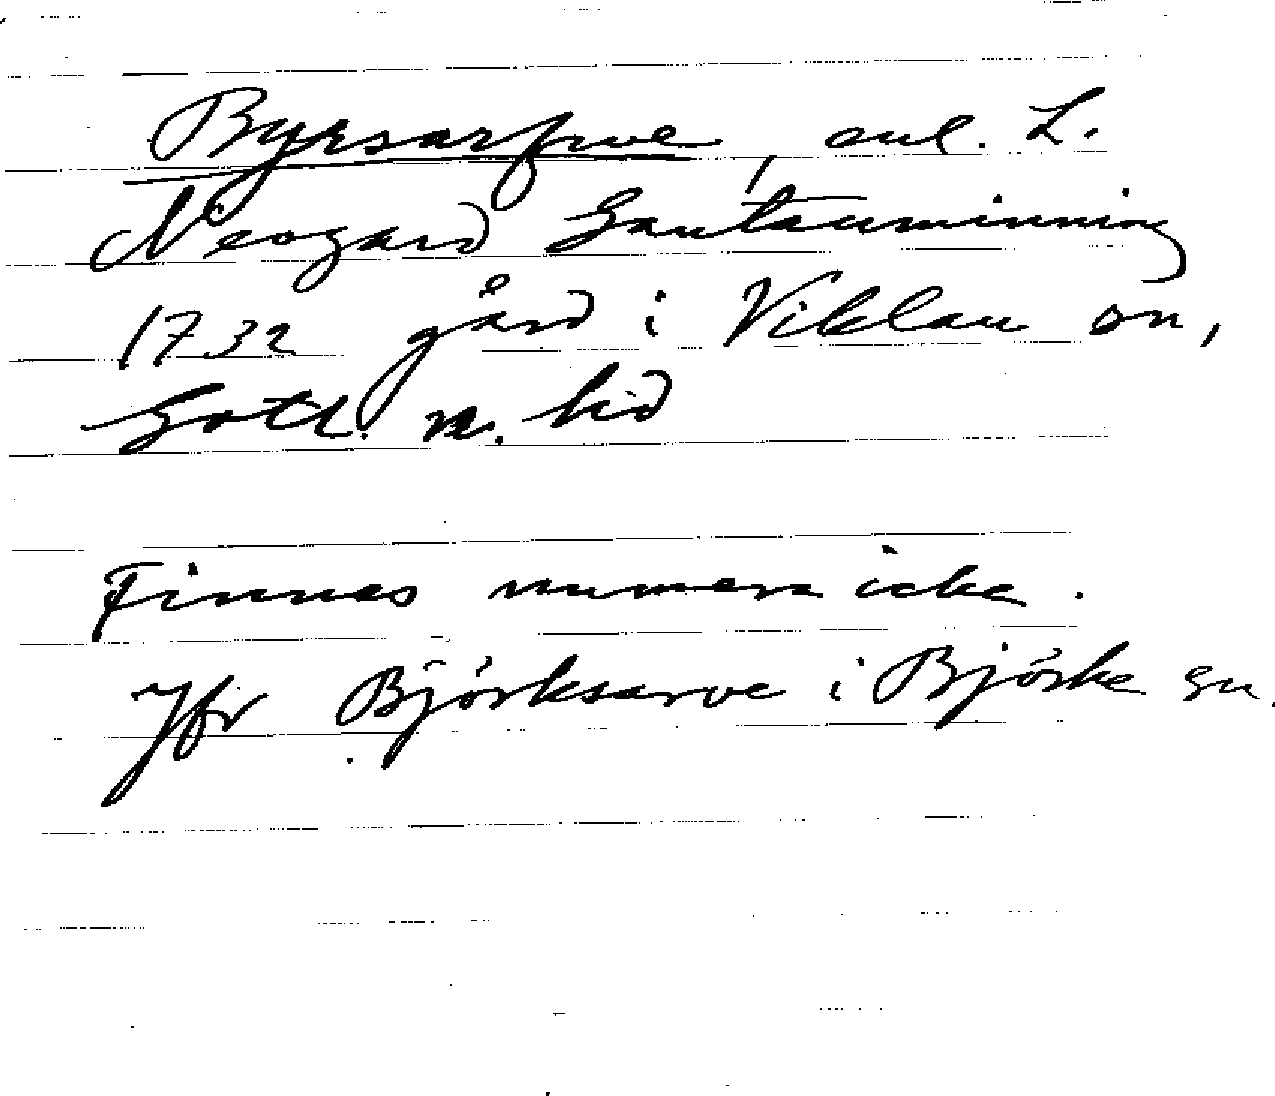 Byrsarfwe, enl. L.
Neogard Gautauminning
1732 gård i Viklau sn,
Gotl. n. hd
Finnes numera icke.
Jfr Björksarve i Björke sn.